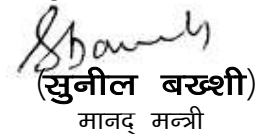 (सुनील बख्शी)
मानद् मन्त्री